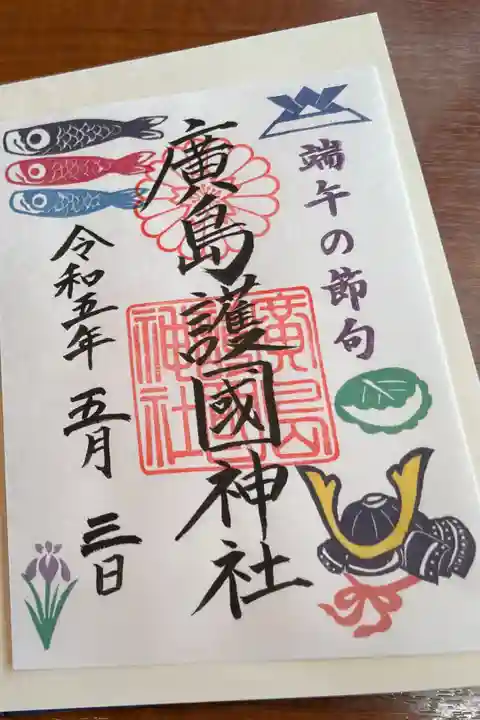 端午の節句
廣島護國神社
廣島護國神社
令和五年 五月 三日